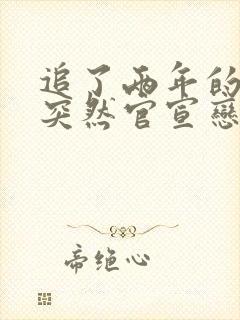 追了两年的
突然官宣戀
帝绝心